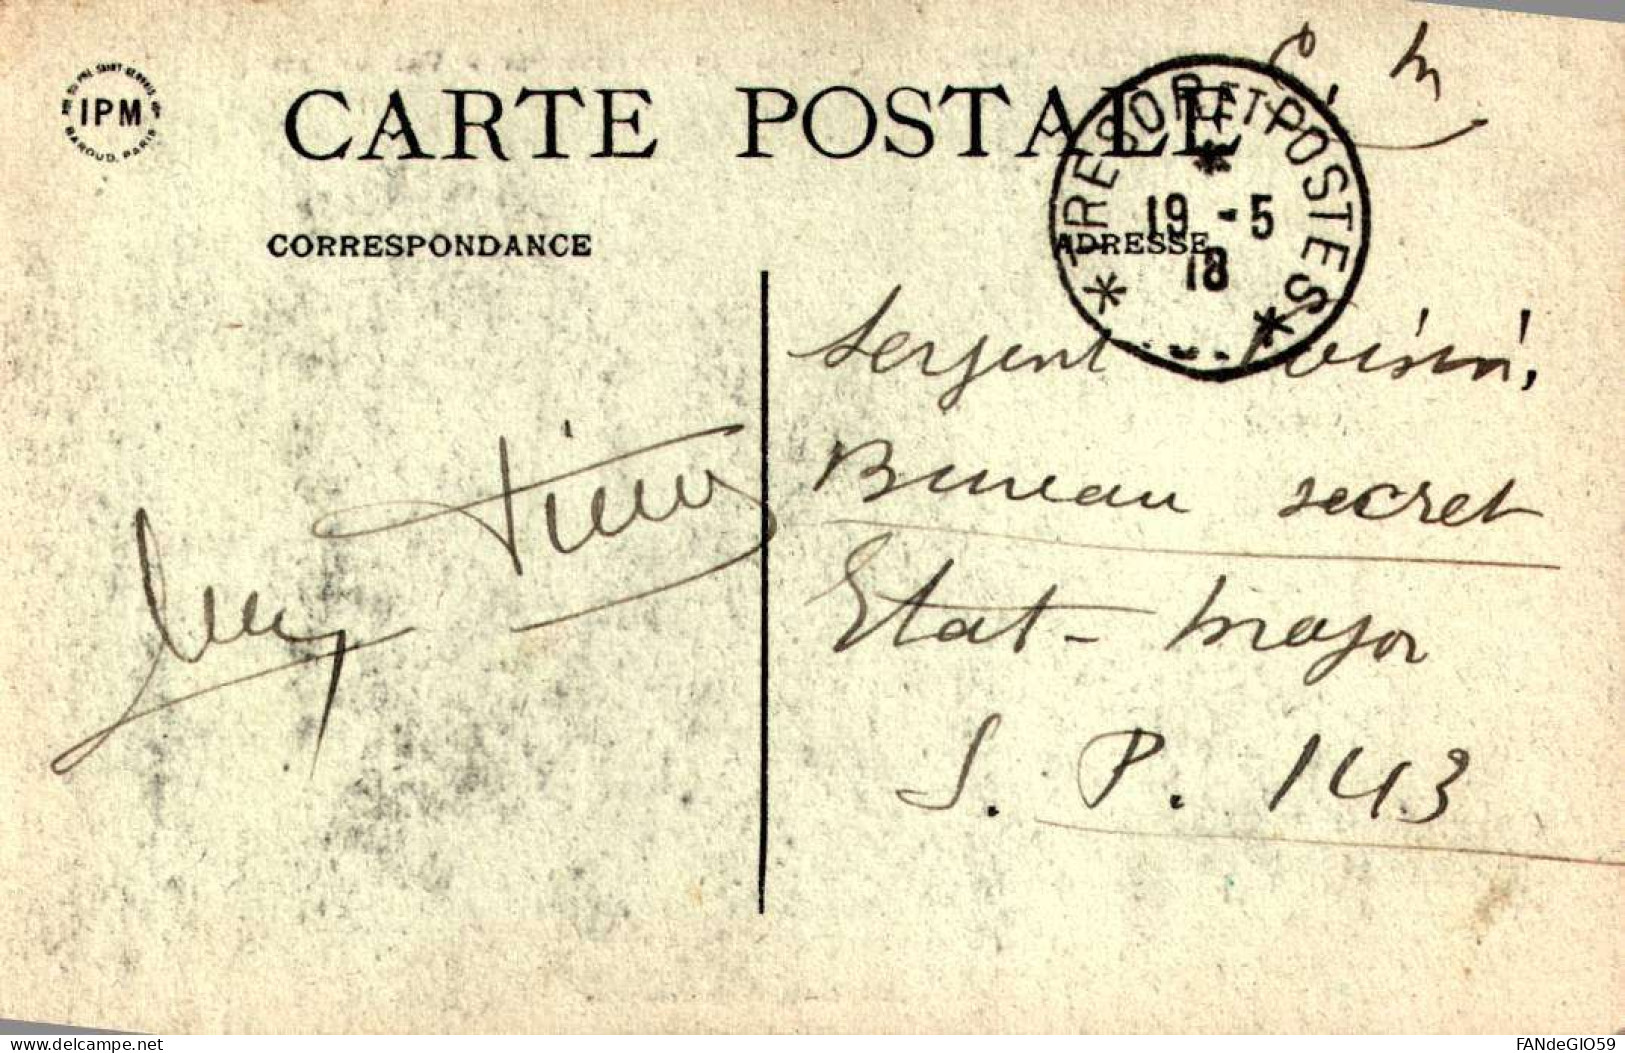 C. M
CARTE POSTALE
IPM
BAROUD. PARIS
TRESOR ET POSTES
19 - 5
18
CORRESPONDANCE
ADRESSE
Sergent Voisin,
Bureau secret
Etat-Major
S. P. 143
www.delcampe.net
FANdeGIO59